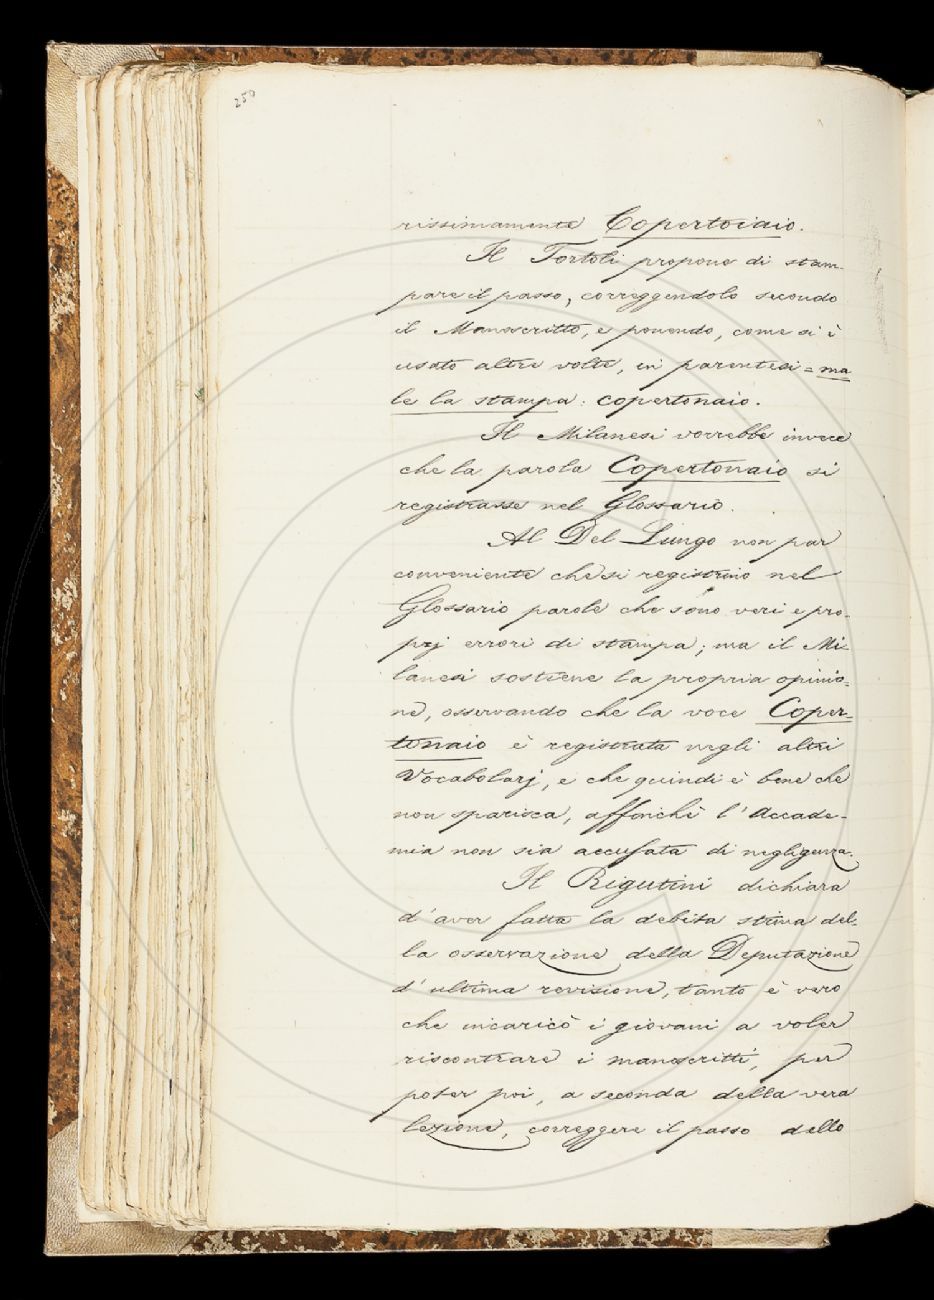 250
rissimamente Copertoiaio.
Il Tortoli propone di stam-
pare il passo, correggendolo secondo
il Manoscritto, e ponendo, come si è
usato altre volte, in parentesi = ma
le la stampa: copertonaio.
Il Milanesi vorrebbe invece
che la parola Copertonaio si
registrasse nel Glossario.
Al Del Lungo non par
conveniente che si registrino nel
Glossario parole che sono veri e pro-
prj errori di stampa; ma il Mi-
lanesi sostiene la propria opinio-
ne, osservando che la voce Coper-
tonaio è registrata negli altri
Vocabolarj, e che quindi è bene che
non sparisca, affinchè l'Accade-
mia non sia accusata di negligenza.
Il Rigutini dichiara
d'aver fatta la debita stima del-
la osservazione della Deputazione
d'ultima revisione, tanto è vero
che incaricò i giovani a voler
riscontrare i manoscritti, per
poter poi, a seconda della vera
lezione, correggere il passo dello